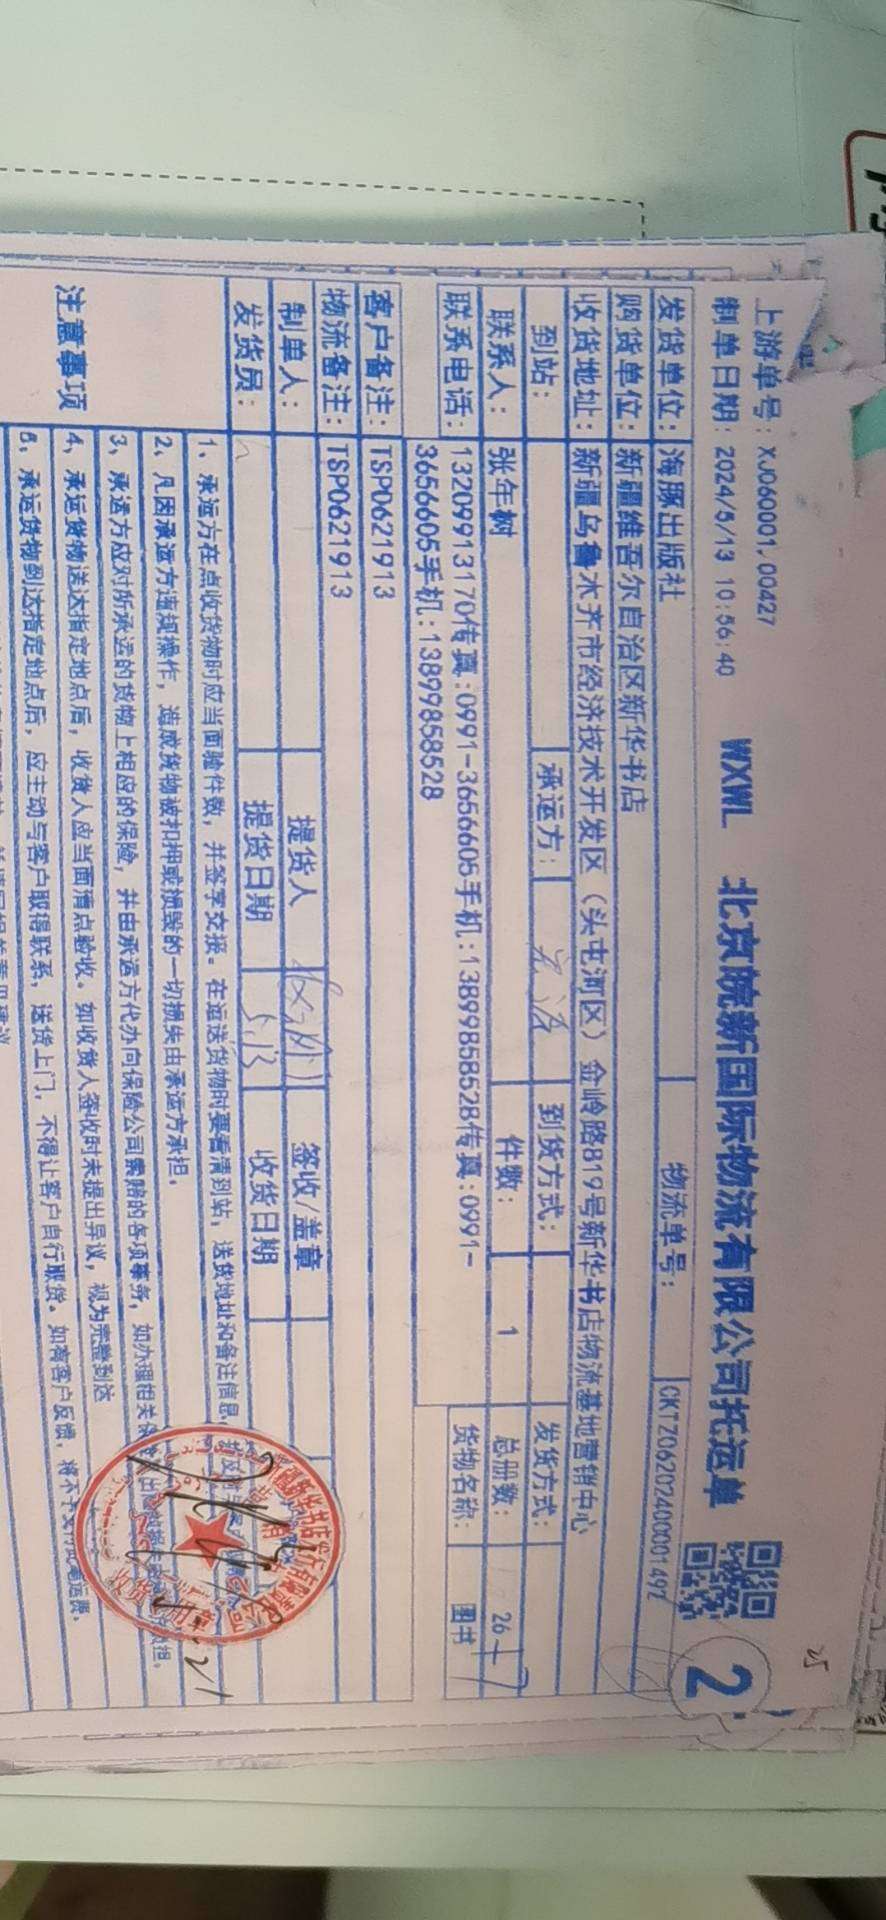 上游单号：XJ060001,00427
WXWL 北京皖新国际物流有限公司托运单
2
制单日期：2024/5/13 10:56:40
物流单号：CKTZ06202400001497
发货单位：海豚出版社
购货单位：新疆维吾尔自治区新华书店
收货地址：新疆乌鲁木齐市经济技术开发区（头屯河区）金岭路819号新华书店物流基地营销中心
到站： 承运方： 到货方式： 发货方式：
联系人：张年树 件数：1 总册数：26
联系电话：13209913170传真:0991-3656605手机:13899858528传真:0991-
3656605手机:13899858528
货物名称：图书
客户备注：TSP0621913
物流备注：TSP0621913
制单人： 提货人 签收/盖章
发货员： 提货日期 5.13 收货日期
注意事项
1、承运方在点收货物时应当面验件数，并签字交接。在运送货物时要看清到站，送货地址和备注信息，
2、凡因承运方违规操作，造成货物被扣押或损毁的一切损失由承运方承担。
3、承运方应对所承运的货物上相应的保险，并由承运方代办向保险公司索赔的各项事务，如办理相关
4、承运货物送达指定地点后，收货人应当面清点验收。如收货人签收时未提出异议，视为完整到达
5、承运货物到达指定地点后，应主动与客户取得联系，送货上门，不得让客户自行取货。如有客户反馈，将不予支付此笔运费。